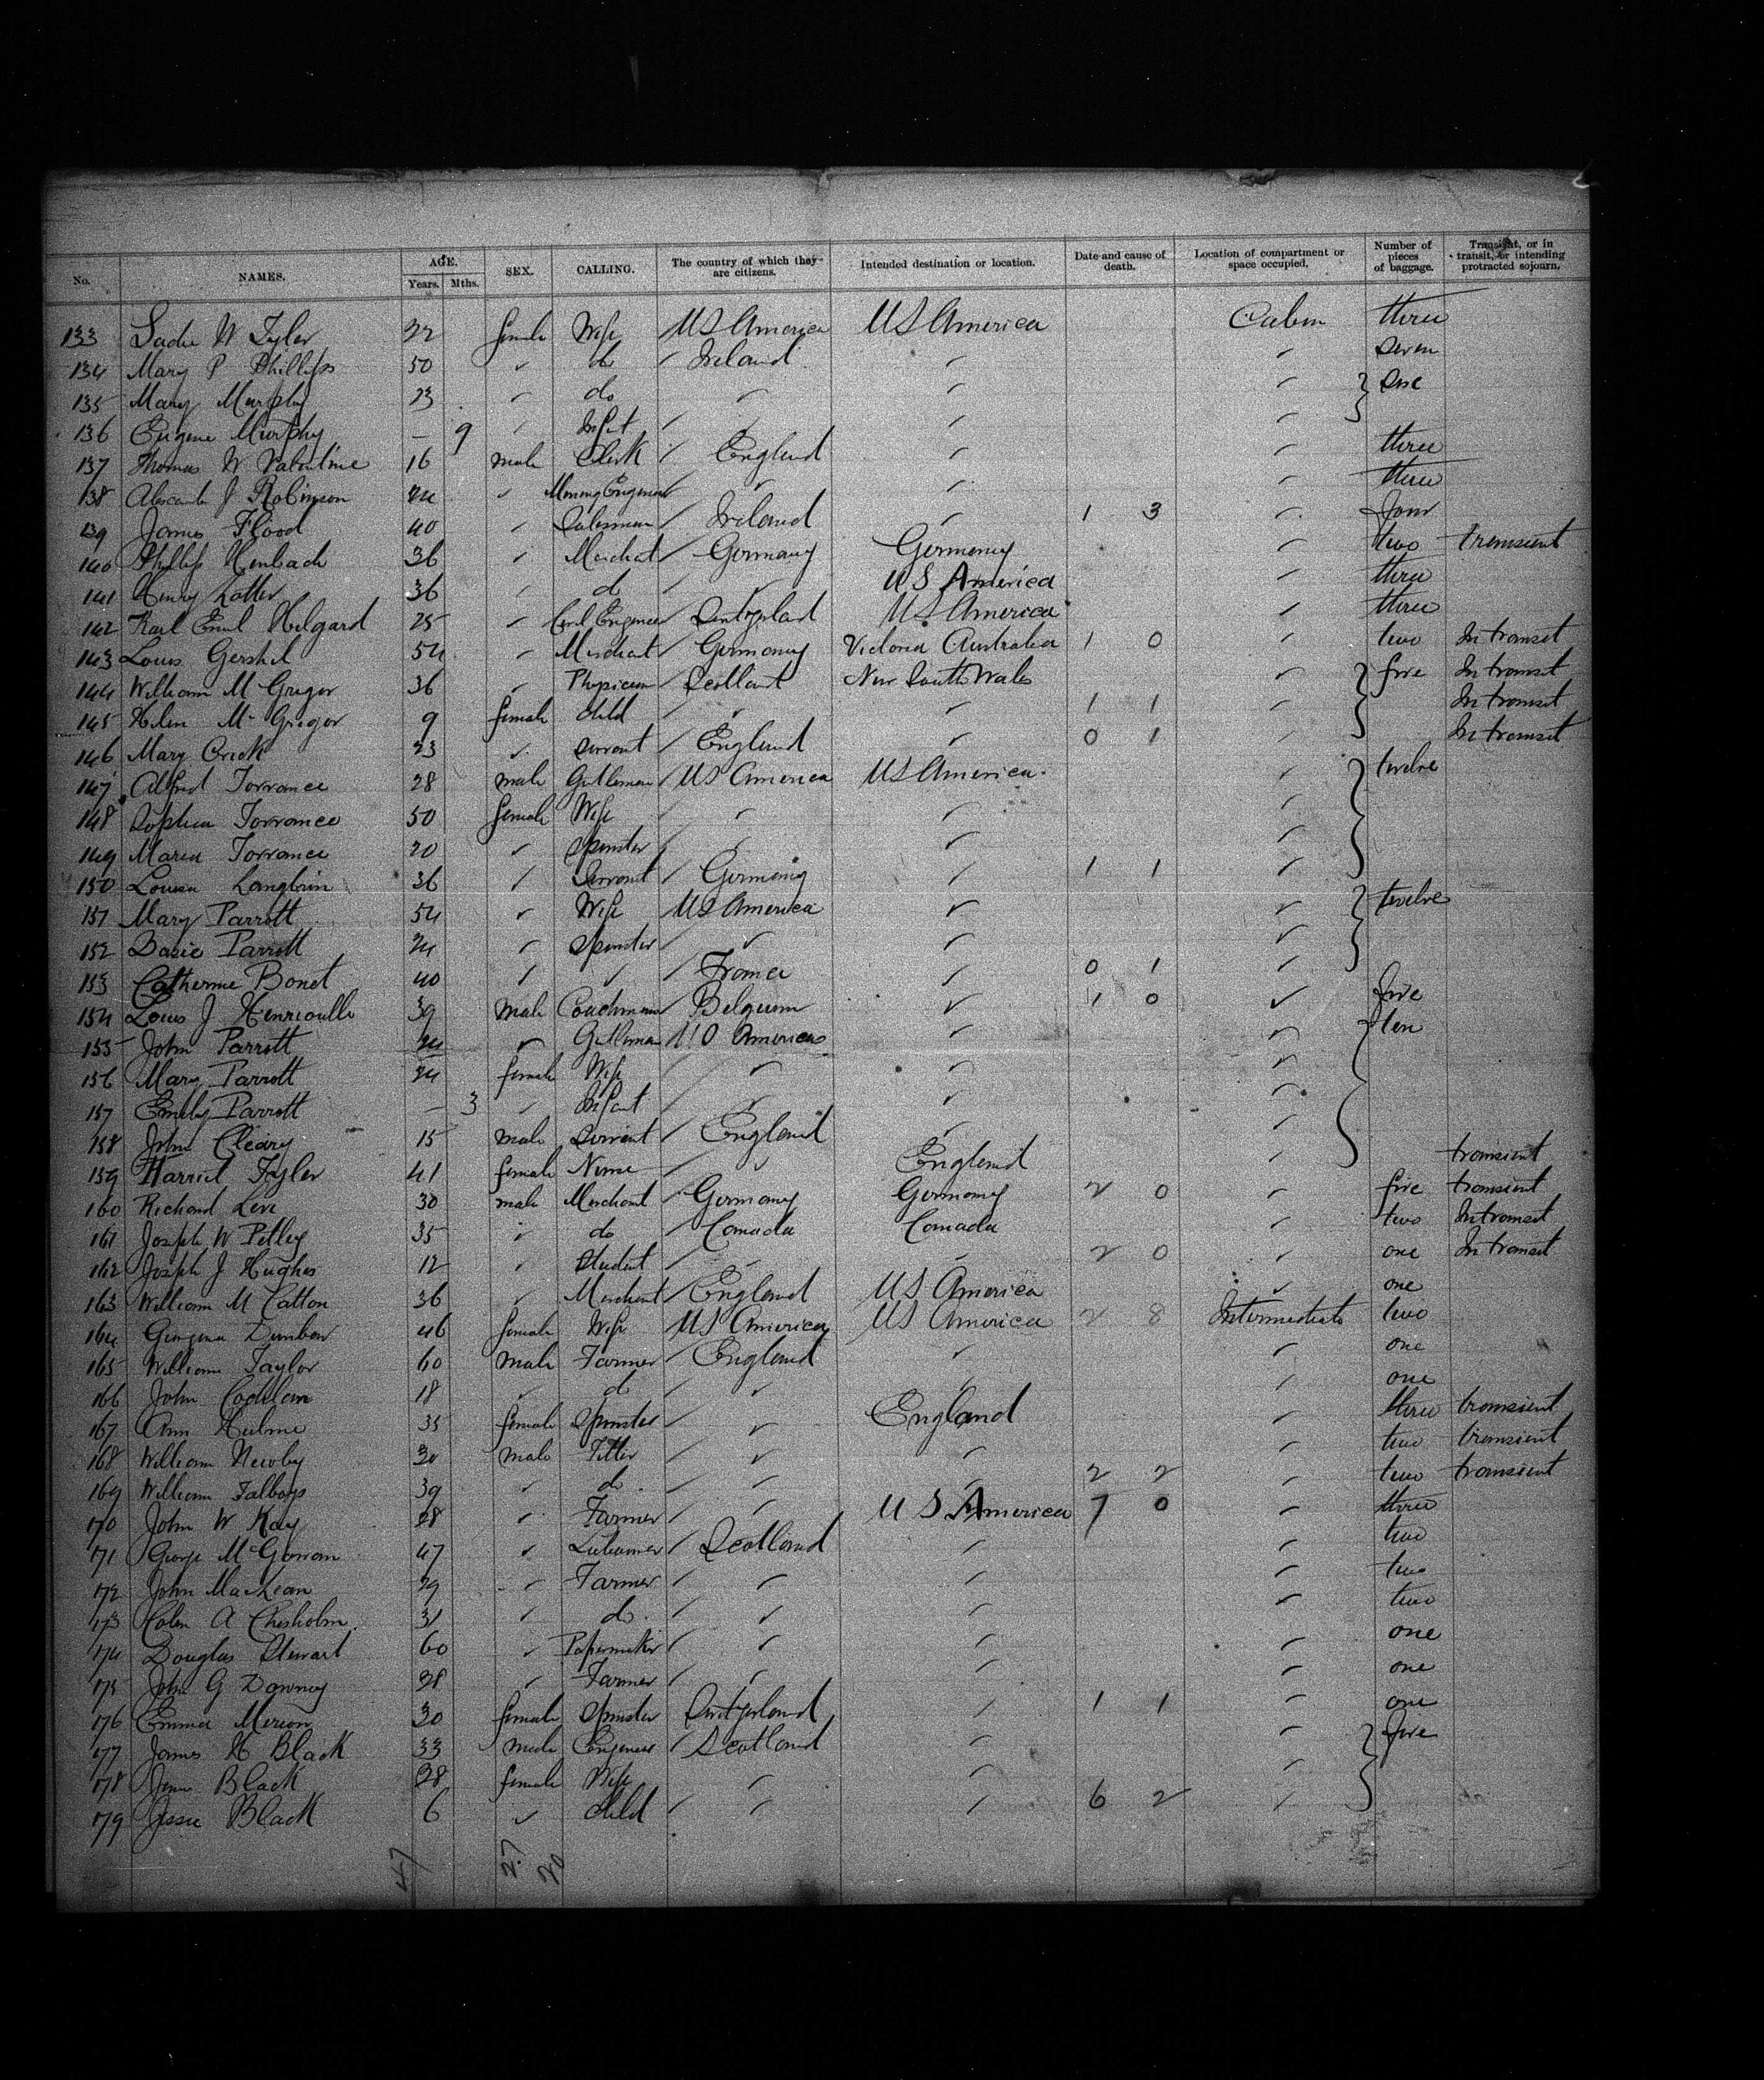 No. NAMES. AGE. Years. Mths. SEX. CALLING. The country of which they are citizens. Intended destination or location. Date and cause of death. Location of compartment or space occupied. Number of pieces of baggage. Transient, or in transit, or intending protracted sojourn.
133 Sadie W Tyler 22 female Wife US America US America Cabin three
134 Mary P Phillips 50 ✓ do Ireland ✓ ✓ seven
135 Mary Murphy 23 ✓ do ✓ ✓ ✓ } one
136 Eugene Murphy — 9 ✓ Infant ✓ ✓ ✓
137 Thomas W Valentine 16 male Clerk England ✓ three
138 J Robinson 24 ✓ Mining Engineer ✓ ✓ three
139 James Flood 40 ✓ Salesman Ireland ✓ 1 3 ✓ four
140 Phillip 36 ✓ Merchant Germany Germany ✓ two transient
141 Henry 36 ✓ do ✓ US America ✓ three
142 Karl Emil Hilgard 25 ✓ Civil Engineer Switzerland US America ✓ three
143 Louis Gershel 54 ✓ Merchant Germany Victoria Australia 1 0 ✓ two In transit
144 William McGregor 36 ✓ Physician Scotland New South Wales ✓ } five In transit
145 Helen McGregor 9 female child ✓ ✓ 1 1 ✓ In transit
146 Mary Crick 23 ✓ Servant England ✓ 0 1 ✓ In transit
147 Alfred Torrance 28 male Gentleman US America US America ✓ } twelve
148 Sophia Torrance 50 female Wife ✓ ✓ ✓
149 Maria Torrance 20 ✓ Spinster ✓ ✓ ✓
150 Louisa 36 ✓ Servant Germany ✓ 1 1 ✓
151 Mary Parrott 54 ✓ Wife US America ✓ ✓ } twelve
152 Parrott 24 ✓ Spinster ✓ ✓ ✓
153 Catherine Bonet 40 ✓ ✓ France ✓ 0 1 ✓
154 Louis J Henrioulle 39 male Coachman Belgium ✓ 1 0 ✓ five
155 John Parrott 24 ✓ Gentleman US America ✓ ✓ } ten
156 Mary Parrott 24 female Wife ✓ ✓ ✓
157 Emily Parrott — 3 ✓ Infant ✓ ✓ ✓
158 John Cleary 15 male Servant England ✓ ✓
159 Harriet Tyler 41 female Nurse ✓ England ✓ transient
160 Richard Levi 30 male Merchant Germany Germany 2 0 ✓ five transient
161 Joseph W Pelley 35 ✓ do Canada Canada ✓ two In transit
162 Joseph J Hughes 12 ✓ Student ✓ ✓ 2 0 ✓ one In transit
163 William M Catton 36 ✓ Merchant England US America ✓ one
164 Georgina Dunbar 46 female Wife US America US America 2 8 Intermediate two
165 William Taylor 60 male Farmer England ✓ ✓ one
166 John 18 ✓ do ✓ ✓ ✓ one
167 Ann Hulme 35 female Spinster ✓ England ✓ three transient
168 William Newby 30 male Fitter ✓ ✓ ✓ two transient
169 William Talboys 39 ✓ do ✓ ✓ 2 2 ✓ two transient
170 John W Kay 28 ✓ Farmer ✓ US America 7 0 ✓ three
171 George McGowan 47 ✓ Scotland ✓ ✓ two
172 John MacLean 29 ✓ Farmer ✓ ✓ ✓ two
173 Colin A Chisholm 31 ✓ do ✓ ✓ ✓ two
174 Douglas Stewart 60 ✓ Papermaker ✓ ✓ ✓ one
175 John G Downey 28 ✓ Farmer ✓ ✓ ✓ one
176 Emma Merion 30 female Spinster Switzerland ✓ 1 1 ✓ one
177 James H Black 33 male Engineer Scotland ✓ ✓ } five
178 Jane Black 28 female Wife ✓ ✓ ✓
179 Jessie Black 6 ✓ child ✓ ✓ 6 2 ✓
47 27 20